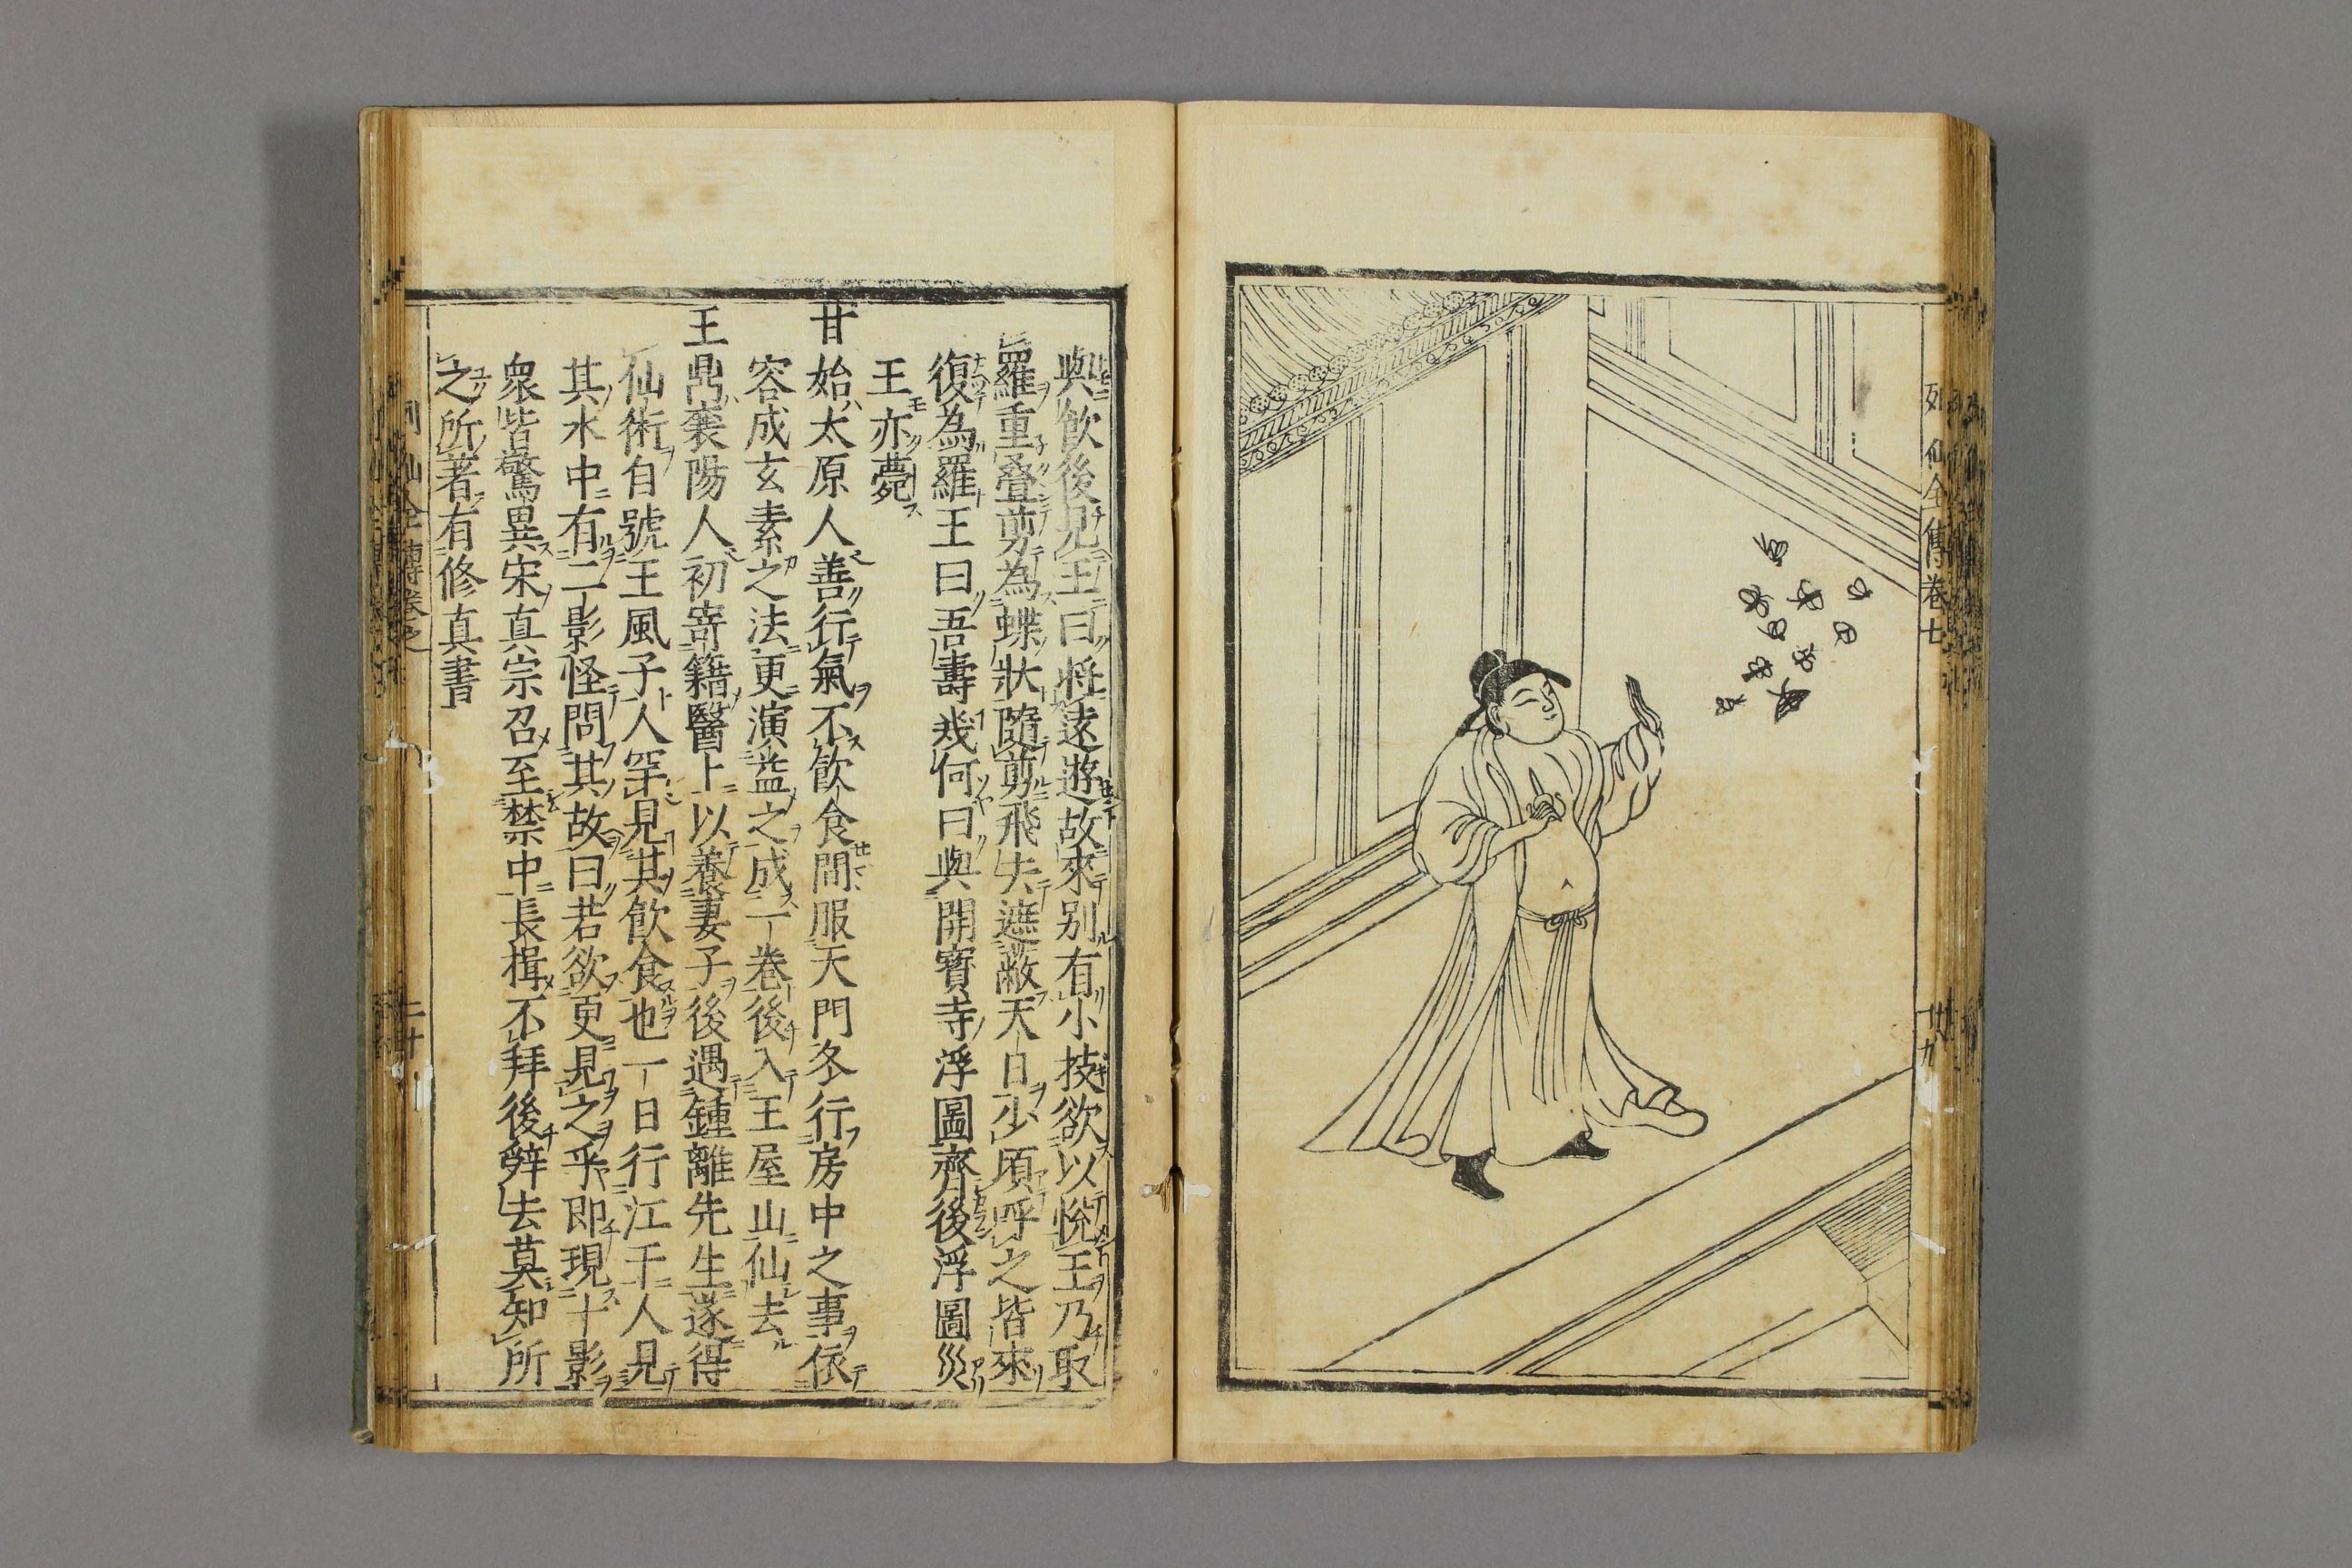 列仙全傳卷七
十九
與飲後見王曰將遠遊故來别有小技欲以悅王乃取
羅重叠剪為蝶狀隨剪飛去遮蔽天日少頃呼之皆來
復為羅王曰吾壽幾何曰與開寶寺浮圖齊後浮圖災
王亦薨
甘始太原人善行氣不飲食間服天門冬行房中之事依
容成玄素之法更演益之成一卷後入王屋山仙去
王鼎襄陽人初寄籍醫上以養妻子後遇鍾離先生遂得
仙術自號王風子人罕見其飲食也一日行江干人見
其水中有二影怪問其故曰若欲更見之乎即現十影
衆皆驚異宋真宗召至禁中長揖不拜後辭去莫知所
之所著有修真書
二十